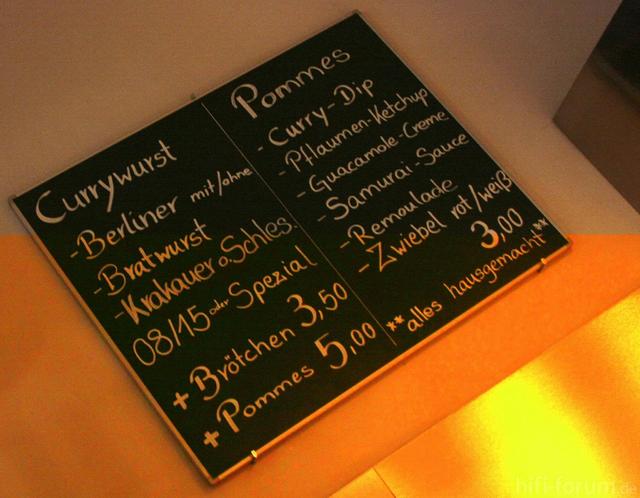 Currywurst
-Berliner mit/ohne
-Bratwurst
-Krakauer o. Schles.
08/15 oder Spezial
+ Brötchen 3,50
+ Pommes 5,00
Pommes
- Curry-Dip
- Pflaumen-Ketchup
- Guacamole-Creme
- Samurai-Sauce
- Remoulade
- Zwiebel rot/weiß
3,00
**alles hausgemacht**
hifi-forum.de